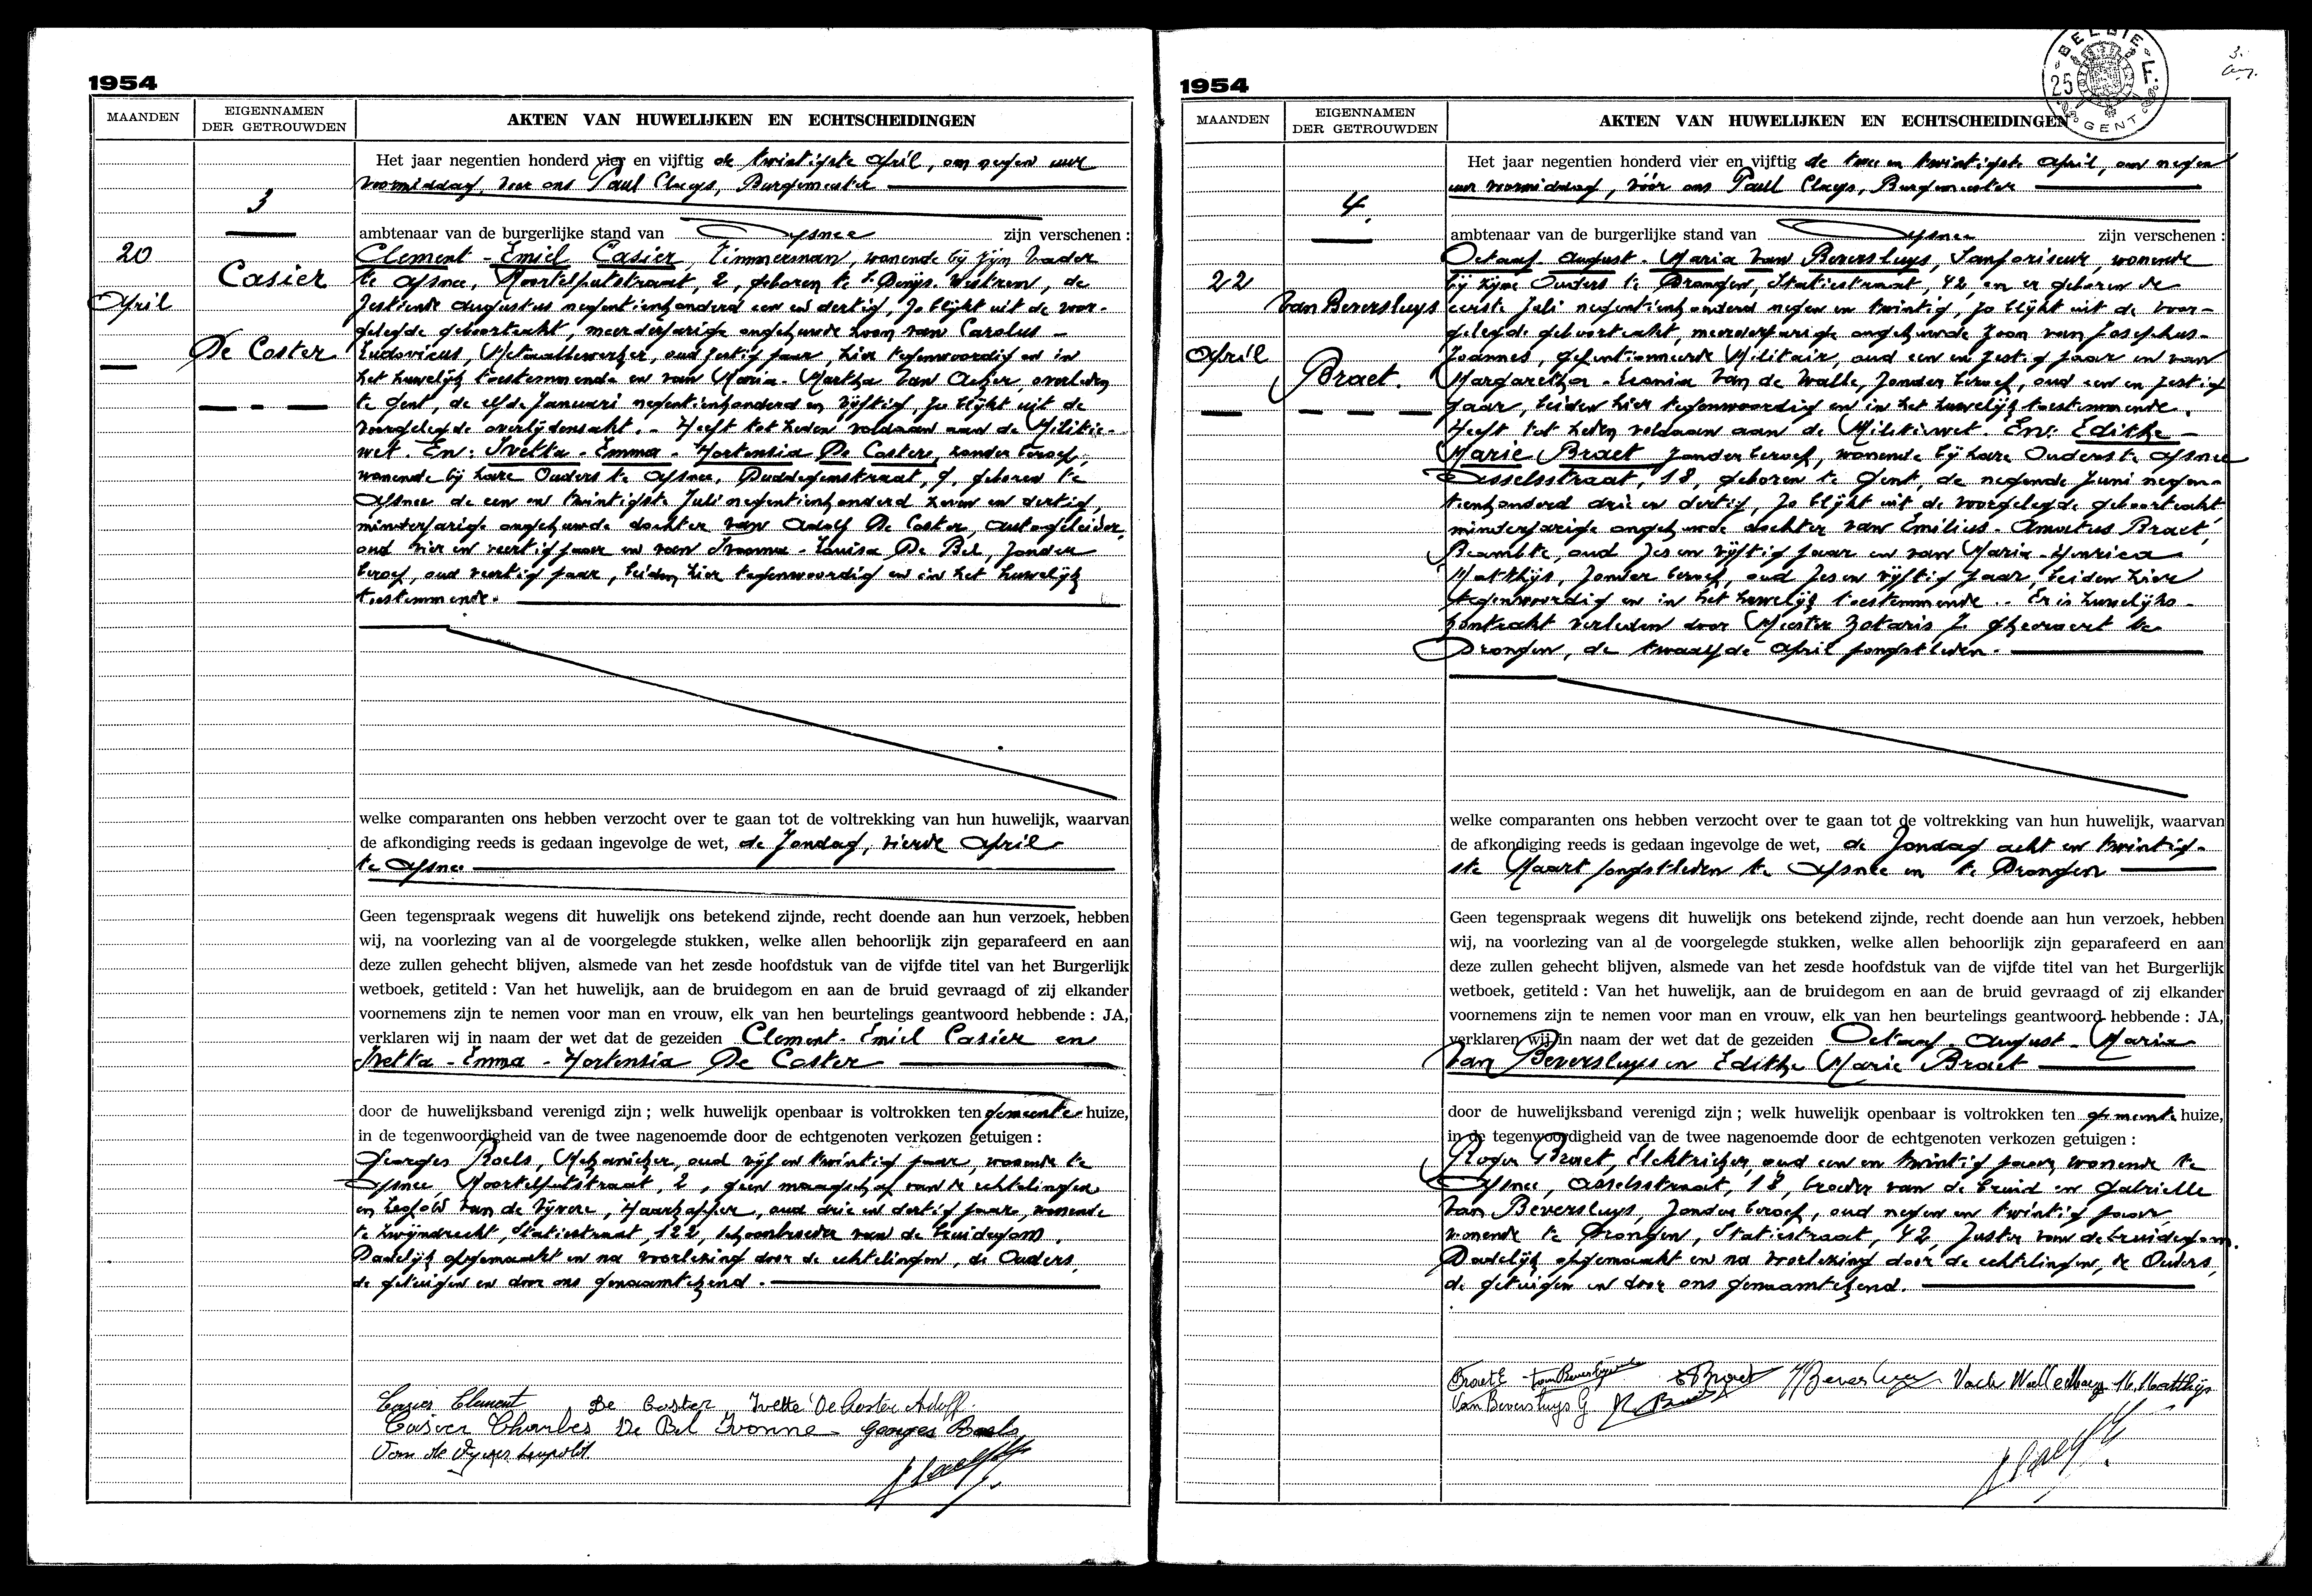 1954
MAANDEN
EIGENNAMEN
DER GETROUWDEN
AKTEN VAN HUWELIJKEN EN ECHTSCHEIDINGEN
3
20
April
Casier
De Coster
Het jaar negentien honderd vier en vijftig de twintigste April, om negen uur
voormiddag, voor ons Paul Cluys, Burgemeester
ambtenaar van de burgerlijke stand van Afsnee zijn verschenen :
Clement - Emiel Casier, Timmerman, wonende bij zijn Vader
te Afsnee, Moortelputstraat, 2, geboren te St Denijs-Westrem, de
zestiende Augustus negentienhonderd een en dertig, zo blijkt uit de voor-
gelegde geboorteakt, meerderjarige ongehuwde zoon van Carolus -
Ludovicus, Metaalbewerker, oud zestig jaar, hier tegenwoordig en in
het huwelijk toestemmende en van Maria - Martha Van Acker overleden
te Gent, de elfde Januari negentienhonderd en vijftig, zo blijkt uit de
voorgelegde overlijdensakt. - Heeft tot heden voldaan aan de Militie-
wet. En: Ivetta - Emma - Hortensia De Coster, zonder beroep,
wonende bij hare Ouders te Afsnee, Duddegemstraat, 9, geboren te
Afsnee de een en twintigste Juli negentienhonderd vier en dertig,
minderjarige ongehuwde dochter van Adolf De Coster, autogeleider,
oud vier en veertig jaar en van Ivonna - Louisa De Bel, zonder
beroep, oud veertig jaar, beiden hier tegenwoordig en in het huwelijk
toestemmende.
welke comparanten ons hebben verzocht over te gaan tot de voltrekking van hun huwelijk, waarvan
de afkondiging reeds is gedaan ingevolge de wet, de Zondag, vierde April
te Afsnee
Geen tegenspraak wegens dit huwelijk ons betekend zijnde, recht doende aan hun verzoek, hebben
wij, na voorlezing van al de voorgelegde stukken, welke allen behoorlijk zijn geparafeerd en aan
deze zullen gehecht blijven, alsmede van het zesde hoofdstuk van de vijfde titel van het Burgerlijk
wetboek, getiteld : Van het huwelijk, aan de bruidegom en aan de bruid gevraagd of zij elkander
voornemens zijn te nemen voor man en vrouw, elk van hen beurtelings geantwoord hebbende : JA,
verklaren wij in naam der wet dat de gezeiden Clement - Emiel Casier en
Ivetta - Emma - Hortensia De Coster
door de huwelijksband verenigd zijn ; welk huwelijk openbaar is voltrokken ten gemeente huize,
in de tegenwoordigheid van de twee nagenoemde door de echtgenoten verkozen getuigen :
Georges Roels, Mekanieker, oud vijf en twintig jaar, wonende te
Afsnee, Moortelputstraat, 2, geen maagschap van de echtelingen
en Leopold Van de Vijvere, Haarkapper, oud drie en dertig jaar, wonende
te Zwijndrecht, Statiestraat, 122, schoonbroeder van de bruidegom.
Dadelijk opgemaakt en na voorlezing door de echtelingen, de Ouders,
de getuigen en door ons genaamtekend.
Casier Clement De Coster Ivette De Coster Adolf
Casier Charles De Bel Ivonne Georges Roels
Van de Vyvere Leopold
1954
BELGIE
25 F.
GENT
3.
MAANDEN
EIGENNAMEN
DER GETROUWDEN
AKTEN VAN HUWELIJKEN EN ECHTSCHEIDINGEN
4.
22
April
Van Beversluys
Braet.
Het jaar negentien honderd vier en vijftig de twee en twintigste April, om negen
uur voormiddag, vóór ons Paul Cluys, Burgemeester
ambtenaar van de burgerlijke stand van Afsnee zijn verschenen :
Octaaf - August - Maria Van Beversluys, Sanforiseur, wonende
bij zijne Ouders te Drongen, Statiestraat, 42, en er geboren de
eerste Juli negentienhonderd negen en twintig, zo blijkt uit de voor-
gelegde geboorteakt, meerderjarige ongehuwde zoon van Josephus -
Joannes, gepentionneerde Militair, oud een en zestig jaar en van
Margaretha - Leonia Van de Walle, zonder beroep, oud een en zestig
jaar, beiden hier tegenwoordig en in het huwelijk toestemmende.
Heeft tot heden voldaan aan de Militiewet. En: Edithe -
Marie Braet, zonder beroep, wonende bij hare Ouders te Afsnee
Asselsstraat, 18, geboren te Gent, de negende Juni negen-
tienhonderd drie en dertig, zo blijkt uit de voorgelegde geboorteakt
minderjarige ongehuwde dochter van Emilius - Amatus Braet,
Beambte, oud zes en vijftig jaar en van Maria - Henrica
Matthijs, zonder beroep, oud zes en vijftig jaar, beiden hier
tegenwoordig en in het huwelijk toestemmende. - Er is huwelijks-
kontrakt verleden door Meester Notaris J. Gheeraert te
Drongen, de twaalfde April jongstleden.
welke comparanten ons hebben verzocht over te gaan tot de voltrekking van hun huwelijk, waarvan
de afkondiging reeds is gedaan ingevolge de wet, de Zondag acht en twintig-
ste Maart jongstleden te Afsnee en te Drongen
Geen tegenspraak wegens dit huwelijk ons betekend zijnde, recht doende aan hun verzoek, hebben
wij, na voorlezing van al de voorgelegde stukken, welke allen behoorlijk zijn geparafeerd en aan
deze zullen gehecht blijven, alsmede van het zesde hoofdstuk van de vijfde titel van het Burgerlijk
wetboek, getiteld : Van het huwelijk, aan de bruidegom en aan de bruid gevraagd of zij elkander
voornemens zijn te nemen voor man en vrouw, elk van hen beurtelings geantwoord hebbende : JA,
verklaren wij in naam der wet dat de gezeiden Octaaf - August - Maria
Van Beversluys en Edithe Marie Braet
door de huwelijksband verenigd zijn ; welk huwelijk openbaar is voltrokken ten gemeente huize,
in de tegenwoordigheid van de twee nagenoemde door de echtgenoten verkozen getuigen :
Roger Braet, Elektrieker, oud een en twintig jaar, wonende te
Afsnee, Asselsstraat, 18, broeder van de bruid en Gabrielle
Van Beversluys, zonder beroep, oud negen en twintig jaar
wonende te Drongen, Statiestraat, 42, Zuster van de bruidegom.
Dadelijk opgemaakt en na voorlezing door de echtelingen, de Ouders,
de getuigen en door ons genaamtekend.
Braet E Van Beversluys E Braet Beversluys Van de Walle Marg M. Matthijs
Van Beversluys G R. Braet